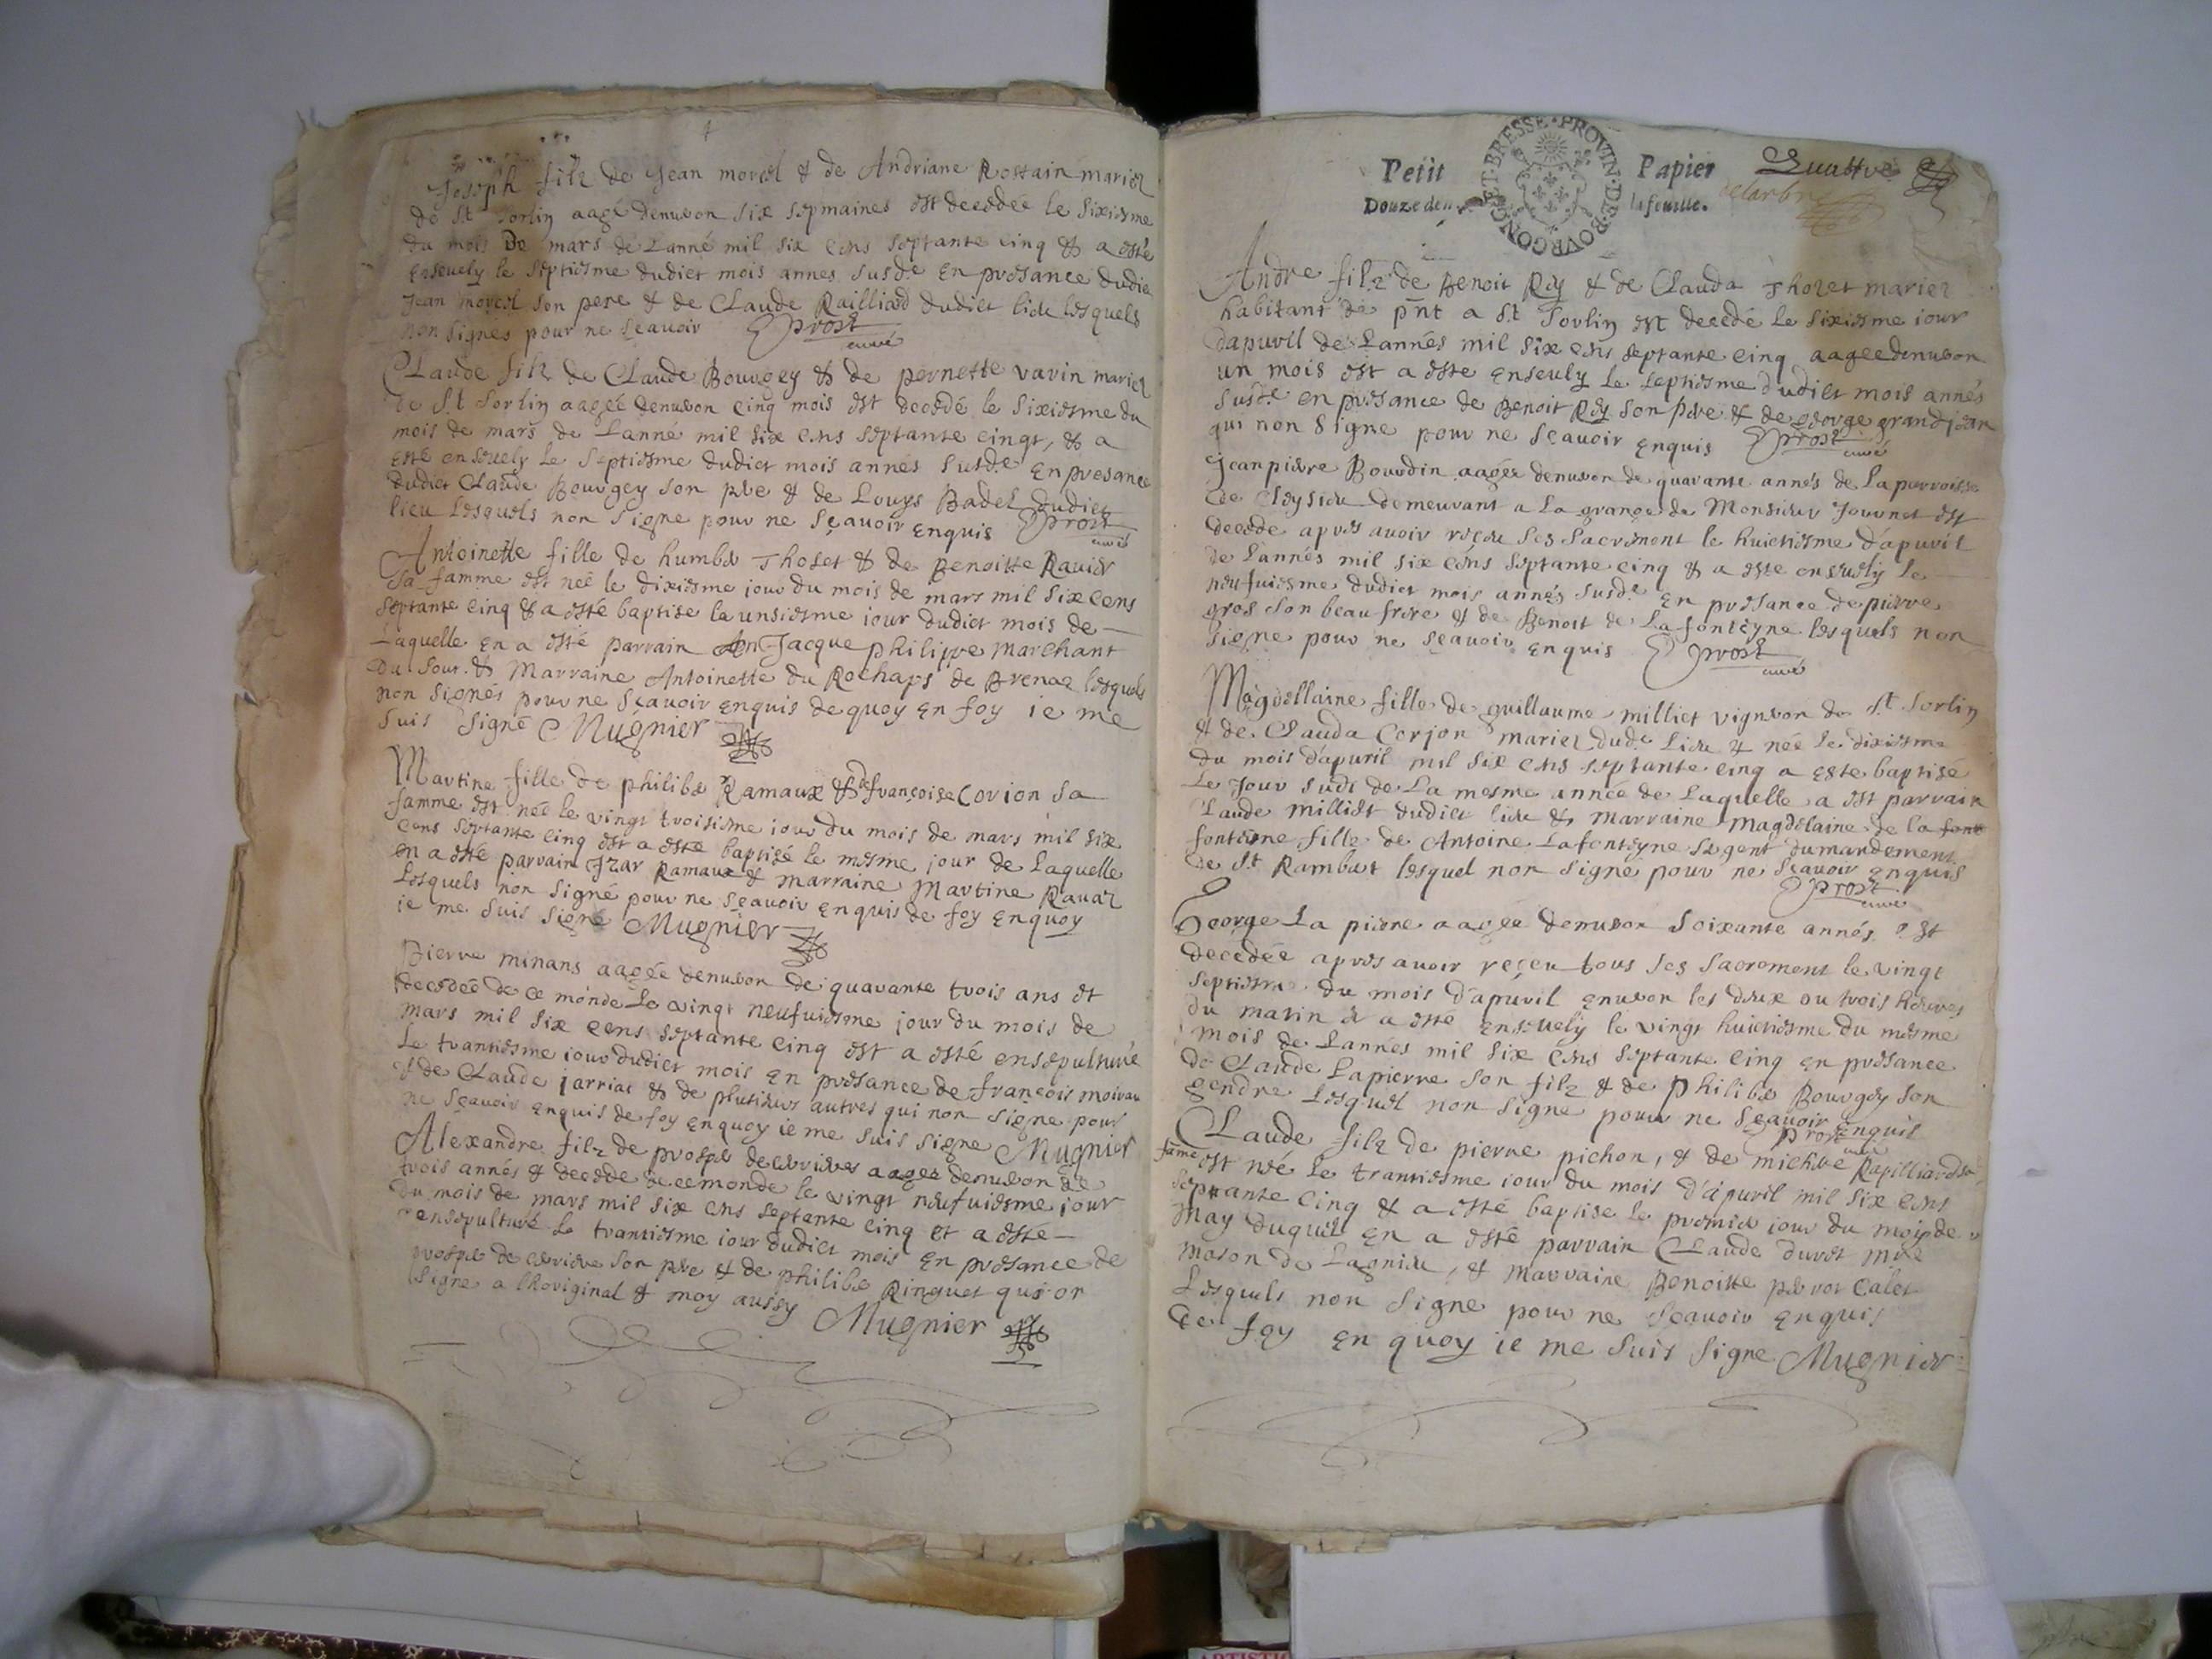 Joseph filz de Jean morel & de Andriane Rostain mariez
de St Sorlin aagé denuiron six sepmaines est decedée le sixiesme
du mois De mars de Lanné mil six cens septante cinq & a esté
enseuely le septiesme dudict mois annes susde en presance dudie
Jean morel son pere & de Claude Railliard dudict lieu lesquels
non signes pour ne sçauoir Prost
curé
Claude filz de Claude Bourgey & de pernette varin mariez
de St Sorlin aagée denuiron cinq mois est decedé le sixiesme du
mois de mars de Lanné mil six cens septante cinqt, & a
esté enseuely le septiesme dudict mois annés susde en presance
dudict Claude Bourgey son pere & de Louys Badel dudict
lieu Lesquels non signe pour ne sçauoir enquis Prost
curé
Antoinette fille de humber Tholet & de Benoitte Rauier
sa famme est neé le dixiesme jour du mois de mars mil six cens
septante cinq & a esté baptise le unsiesme iour dudict mois de
Laquelle en a esté parrain Jacque philippe marchant
Du Sour & Marraine Antoinette du Rochaps de Brenaz lesquels
non signés pour ne sçauoir enquis de quoy en foy ie me
suis signé Mugnier
Martine fille de philiber Ramaux & de françoise Corion sa
famme est neé le vingt troisisme iour du mois de mars mil six
cens septante cinq est a esté baptizé le mesme jour de Laquelle
en a esté parrain Izar Ramaux & marraine Martine Rauaz
Lesquels non signé pour ne sçauoir enquis de foy enquoy
ie me suis signé Mugnier
Pierre minans aagée denuiron de quarante trois ans et
decedée de ce monde Le vingt neufuiesme jour du mois de
mars mil six cens septante cinq est a esté ensepulturé
Le trantiesme iour dudict mois en presance de françois moirau
& de Claude jarriat & de plusieurs autres qui non signe pour
ne sçauoir enquis de foy enquoy ie me suis signe Mugnier
Alexandre filz de prosper de aagez denuiron de
trois annés & decede de ce monde le vingt neufuiesme jour
du mois de mars mil six cens septante cinq et a esté
ensepulturé Le trantiesme iour dudict mois en presance de
prosper de son pere & de philiber Ringuet qui or
signe a lhoriginal & moy aussy Mugnier
Petit Papier Quattre
Douze den la feuille. delarbre
BRESSE · PROVIN · DE · BOVRGONG · ET ·
Andre filz de Benoit Rey & de Clauda Tholet mariez
habitant de pnt a St Sorlin est decedé Le sixiesme iour
dapuril de Lannés mil six cens septante cinq aagee denuiron
un mois est a esté enseuely Le septiesme dudict mois annés
susde en presance de Benoit Rey son pere & de george grandjean
qui non signe pour ne sçauoir enquis Prost
curé
Jean pierre Bourdin aagée denuiron de quarante annés de La parroisse
de Leysieu demeurant a La grange de Monsieur Journet est
decedé apres auoir reçeu ses sacrement le huictiesme d'apuril
de Lannés mil six cens septante cinq & a esté enseuely le
neufuiesme dudict mois annés susde en presance de pierre
gros son beau frere & de Benoit de La fonteyne lesquels non
signe pour ne sçauoir enquis Prost
curé
Magdellaine fille de guillaume milliet vigneron de St Sorlin
& de Clauda Corjon mariez dude Lieu & neé le dixiesme
du mois d'apuril mil six cens septante cinq a esté baptisé
Le Jour sudt de La mesme année de Laquelle a est parrain
Claude milliet dudict lieu & marraine magdelaine de la font
fonteyne fille de Antoine Lafonteyne sergent dumandement
de St Rambert lesquel non signé pour ne sçauoir enquis
Prost
curé
George La pierre aagée denuiron soixante annés est
decedée apres auoir reçeu tous ses sacrement le vingt
septiesme du mois d'apuril enuiron les deux ou trois heures
du matin & a esté enseuely le vingt huictiesme du mesme
mois de Lannés mil six cens septante cinq en presance
de Claude Lapierre son filz & de Philiber Bourgey son
gendre Lesquel non signe pour ne sçauoir enquis
Prost
curé
Claude filz de pierre pichon, & de Rapilliard sa
fame est neé le trantiesme iour du mois d'apuril mil six cens
septante cinq & a esté baptise le premier iour du mois de
may duquel en a esté parrain Claude duret mre
mason de Lagnieu, & marraine Benoitte
Lesquels non signe pour ne sçauoir enquis
de foy en quoy ie me suis signe Mugnier